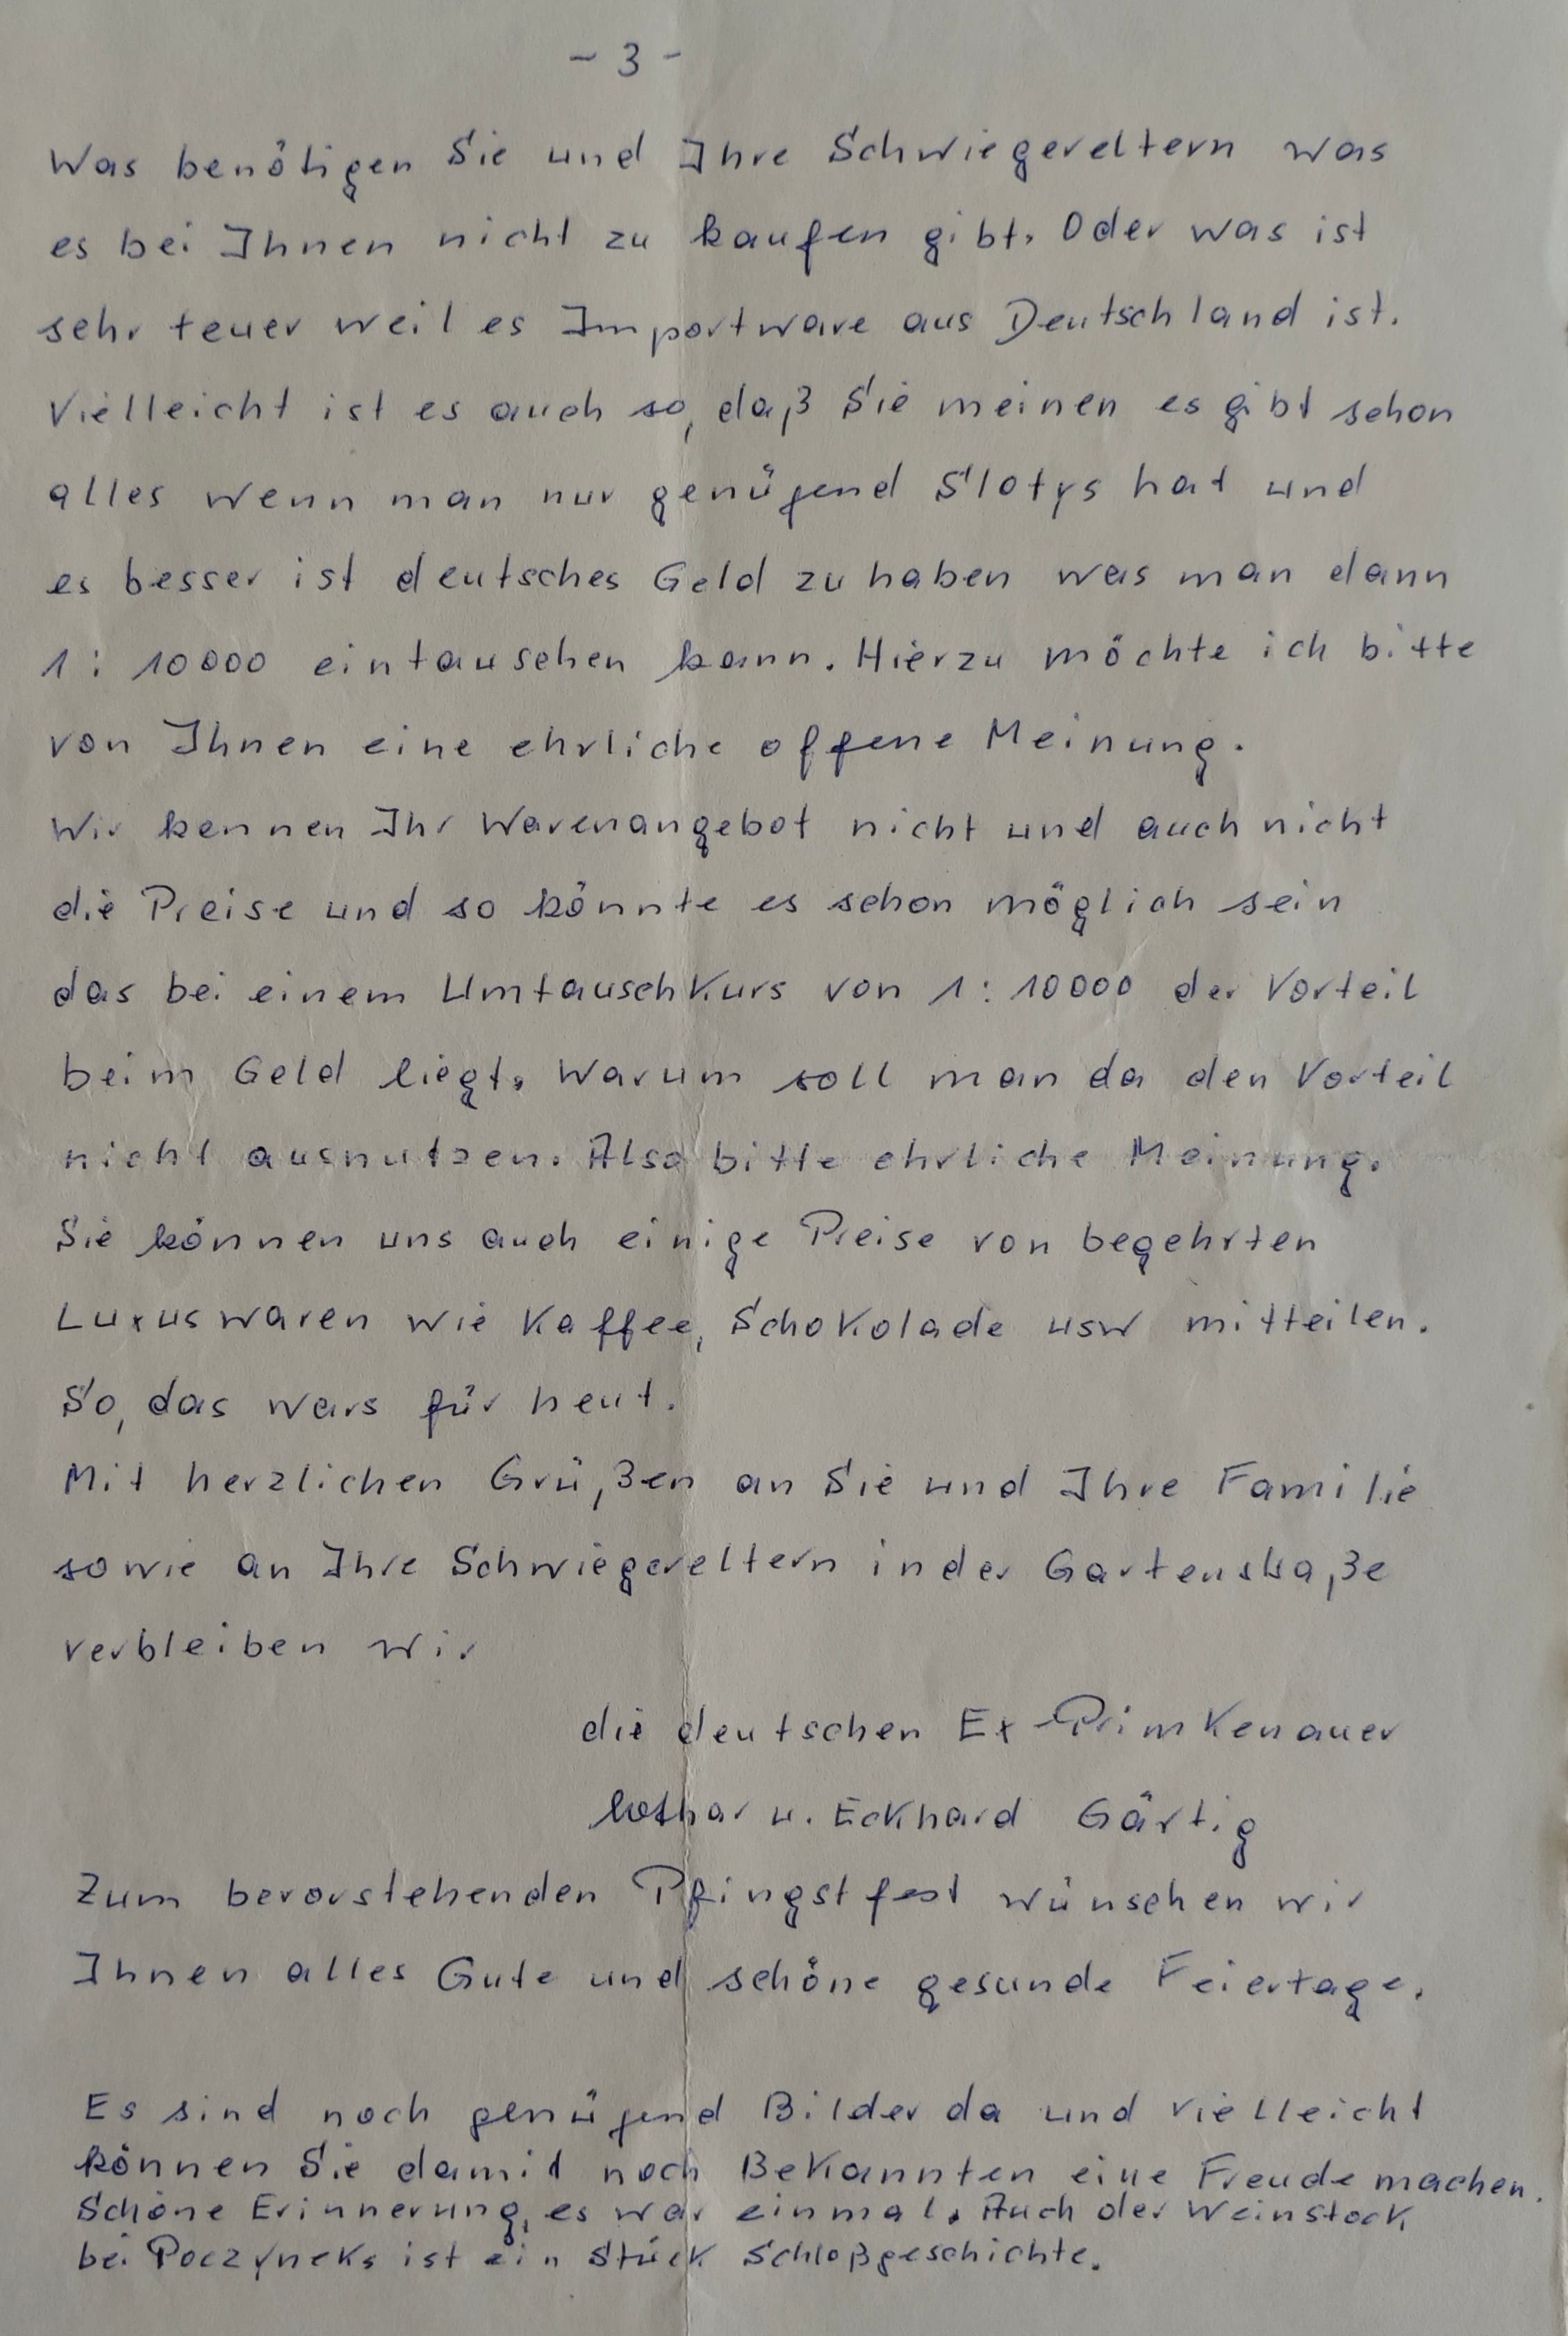 - 3 -
Was benötigen Sie und Ihre Schwiegereltern was
es bei Ihnen nicht zu kaufen gibt. Oder was ist
sehr teuer weil es Importware aus Deutschland ist.
Vielleicht ist es auch so, daß Sie meinen es gibt schon
alles wenn man nur genügend Slotys hat und
es besser ist deutsches Geld zu haben was man dann
1 : 10000 eintauschen kann. Hierzu möchte ich bitte
von Ihnen eine ehrliche offene Meinung.
Wir kennen Ihr Warenangebot nicht und auch nicht
die Preise und so könnte es schon möglich sein
das bei einem Umtauschkurs von 1 : 10000 der Vorteil
beim Geld liegt. Warum soll man da den Vorteil
nicht ausnutzen. Also bitte ehrliche Meinung.
Sie können uns auch einige Preise von begehrten
Luxuswaren wie Kaffee, Schokolade usw mitteilen.
So, das wars für heut.
Mit herzlichen Grüßen an Sie und Ihre Familie
sowie an Ihre Schwiegereltern in der Gartenstraße
verbleiben wir
die deutschen Ex-Primkenauer
Lothar u. Eckhard Gärtig
Zum bevorstehenden Pfingstfest wünschen wir
Ihnen alles Gute und schöne gesunde Feiertage.
Es sind noch genügend Bilder da und vielleicht
können Sie damit noch Bekannten eine Freude machen.
Schöne Erinnerung, es war einmal. Auch der Weinstock
bei Poczyncks ist ein Stück Schloßgeschichte.